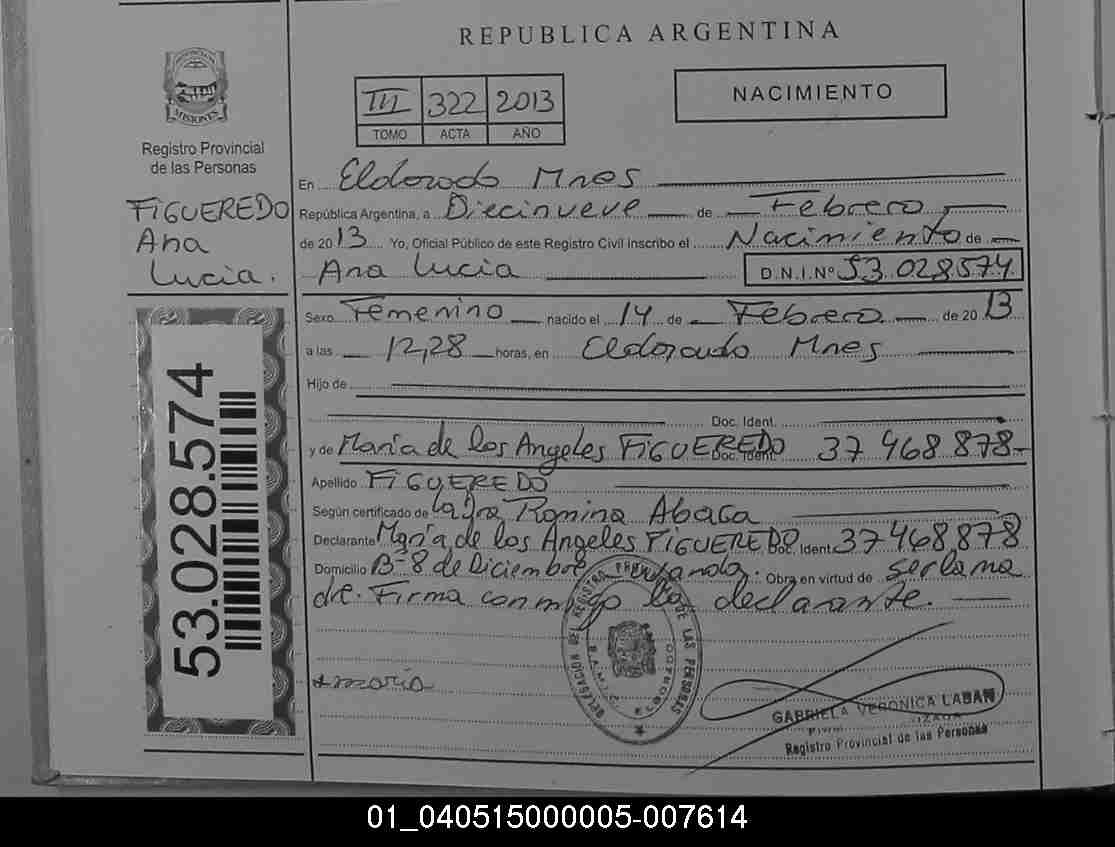 REPUBLICA ARGENTINA
PROVINCIA DE
MISIONES
Registro Provincial
de las Personas
III 322 2013
TOMO ACTA AÑO
NACIMIENTO
FIGUEREDO
Ana
Lucia.
53.028.574
En Eldorado Mnes
República Argentina, a Diecinueve de Febrero
de 2013 Yo, Oficial Público de este Registro Civil inscribo el Nacimiento de
Ana Lucia D.N.I.Nº 53.028574
Sexo Femenino nacido el 14 de Febrero de 2013
a las 12,28 horas, en Eldorado Mnes
Hijo de
Doc. Ident.
y de María de los Angeles FIGUEREDO Doc. Ident. 37 468 878
Apellido FIGUEREDO
Según certificado de la Dra Romina Abaca
Declarante María de los Angeles FIGUEREDO Doc. Ident. 37468878
Domicilio Bº 8 de Diciembre Obra en virtud de ser la ma
dre. Firma conmigo la declarante.
maria
DELEGACION DEL REGISTRO DE LAS PERSONAS
GABRIELA VERONICA LABAN
Registro Provincial de las Personas
01_040515000005-007614